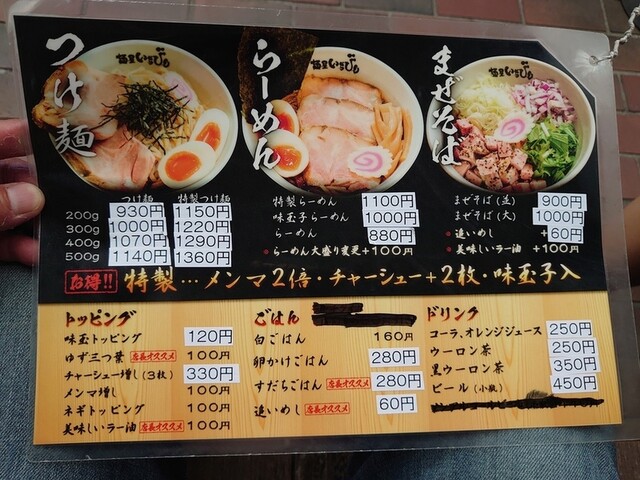 つけ麺
らーめん
まぜそば
麺屋いちびり
麺屋いちびり
麺屋いちびり
つけ麺 特製つけ麺
200g 930円 1150円
300g 1000円 1220円
400g 1070円 1290円
500g 1140円 1360円
特製らーめん 1100円
味玉子らーめん 1000円
らーめん 880円
●らーめん大盛り変更+100円
まぜそば(並) 900円
まぜそば(大) 1000円
●追いめし +60円
●美味しいラー油 +100円
お得!! 特製…メンマ2倍・チャーシュー+2枚・味玉子入
トッピング
味玉トッピング 120円
ゆず三つ葉 店長オススメ 100円
チャーシュー増し(3枚) 330円
メンマ増し 100円
ネギトッピング 100円
美味しいラー油 店長オススメ 100円
ごはん
白ごはん 160円
卵かけごはん 280円
すだちごはん 店長オススメ 280円
追いめし 店長オススメ 60円
ドリンク
コーラ、オレンジジュース 250円
ウーロン茶 250円
黒ウーロン茶 350円
ビール(小瓶) 450円